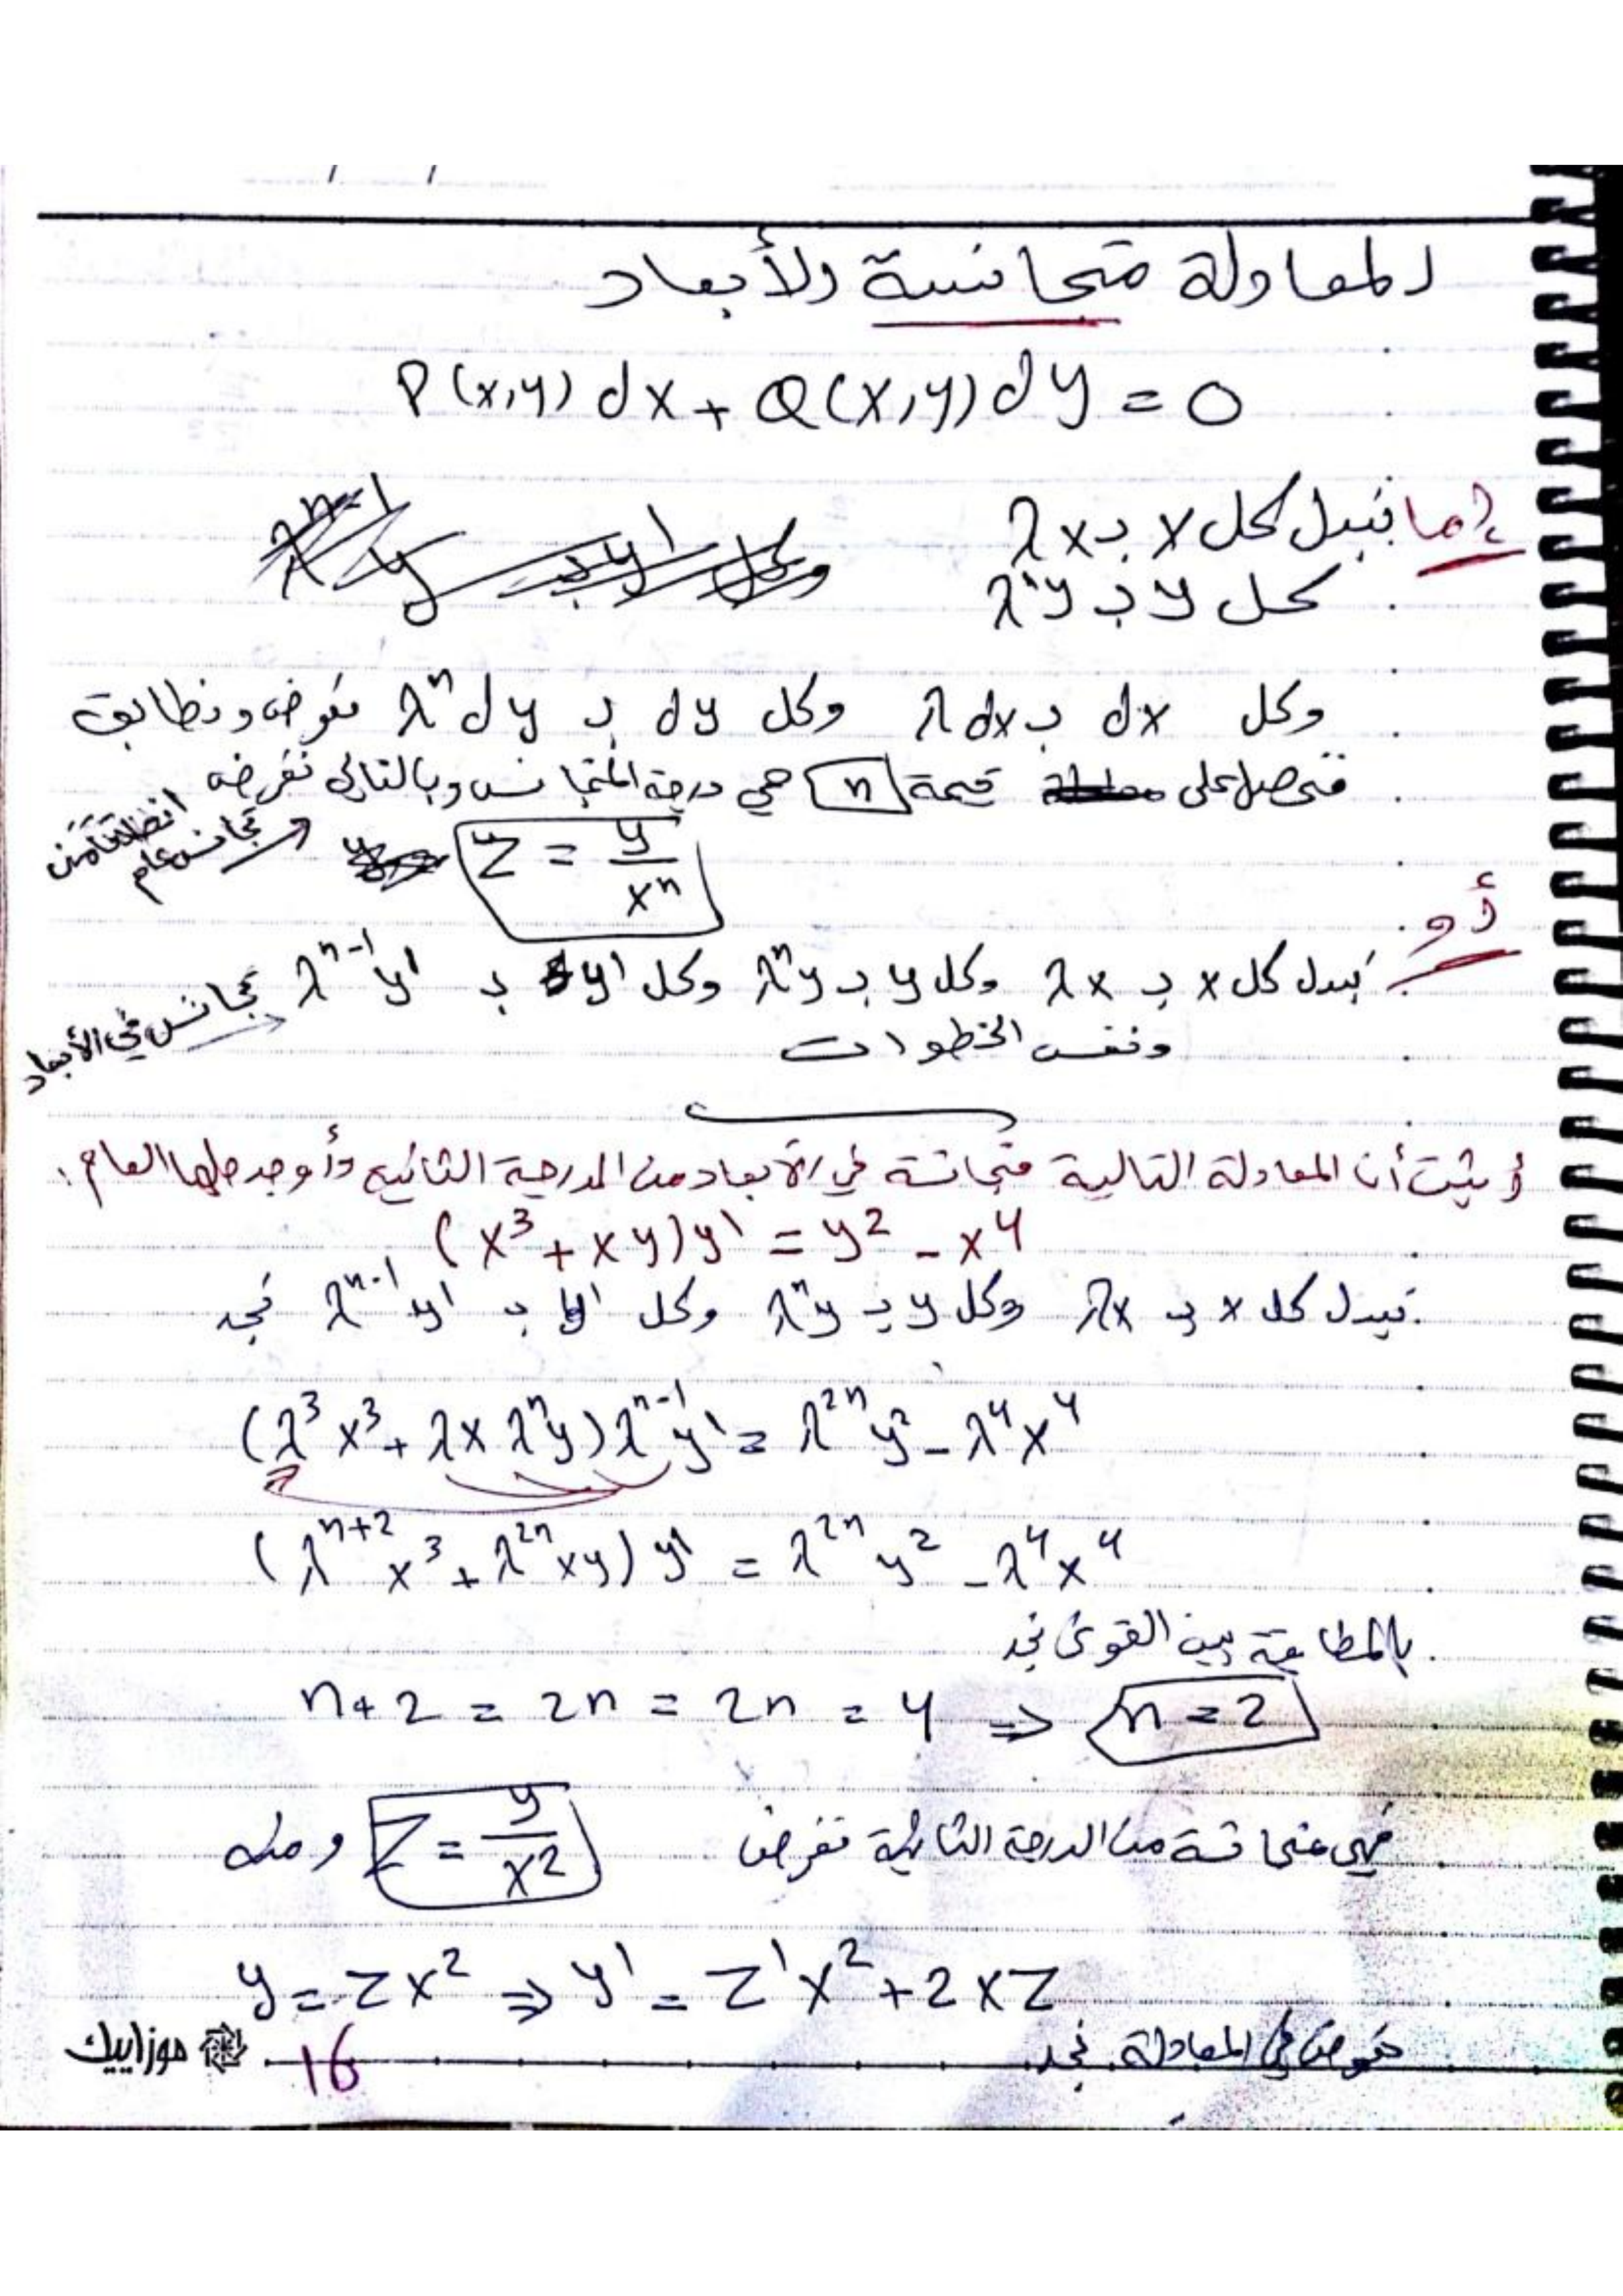 المعاولة متجانسة والأبعاد
P(x,y) dx + Q(x,y) dy = 0
إما نبدل كل x بـ λx
كل y بـ λⁿy
وكل dx بـ λdx وكل dy بـ λⁿdy نعوض ونطابق
فنحصل على قيمة n هي درجة التجانس وبالتالي نفرض
z = y/xⁿ
تجانس عام
أو
نبدل كل x بـ λx وكل y بـ λⁿy وكل y' بـ λⁿ⁻¹y' تجانس في الأبعاد
ونفس الخطوات
أثبت أن المعادلة التالية متجانسة في الأبعاد من الدرجة الثانية وأوجد حلها العام:
(x³ + xy)y' = y² - x⁴
نبدل كل x بـ λx وكل y بـ λⁿy وكل y' بـ λⁿ⁻¹y' نجد
(λ³x³ + λx λⁿy)λⁿ⁻¹y' = λ²ⁿy² - λ⁴x⁴
(λⁿ⁺²x³ + λ²ⁿxy)y' = λ²ⁿy² - λ⁴x⁴
بالمطابقة بين القوى نجد
n+2 = 2n = 2n = 4 ⇒ n = 2
فهي متجانسة من الدرجة الثانية نفرض z = y/x² ومنه
y = zx² ⇒ y' = z'x² + 2xz
نعوض في المعادلة نجد
16
موزاييك